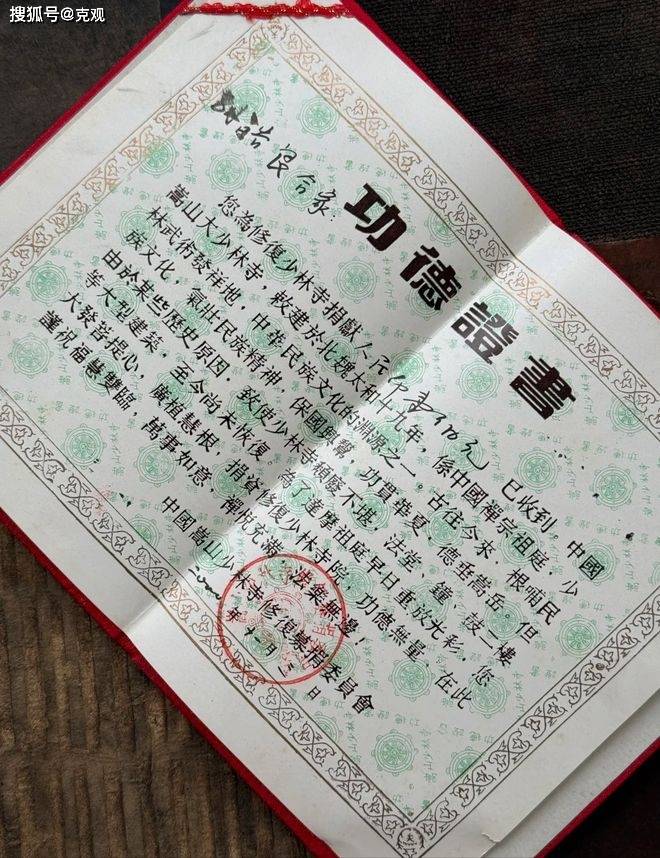 搜狐号@克观
功德證書
良合家
您為修復少林寺捐獻人民币壹佰元 已收到。中國
嵩山大少林寺，敕建於北魏太和十九年，係中國禪宗祖庭，少
林武術發祥地，中華民族文化的淵源之一。古往今求，根喃民
族文化，氣壯民族精神，保國護教，功貫華夏，德垂嵩岳。但
由於某些歷史原因，致使少林寺頹廢不堪，法堂、鐘、鼓二樓
等大型建築，至今尚未恢復。為了達摩祖庭早日重放光彩，您
大發菩提心，廣植慧根，捐資修復少林寺院，功德無量，在此
謹祝福慧雙臨，萬事如意，禪悅充滿，法樂無邊。
中國嵩山少林寺修復樂捐委員會
年 月 日